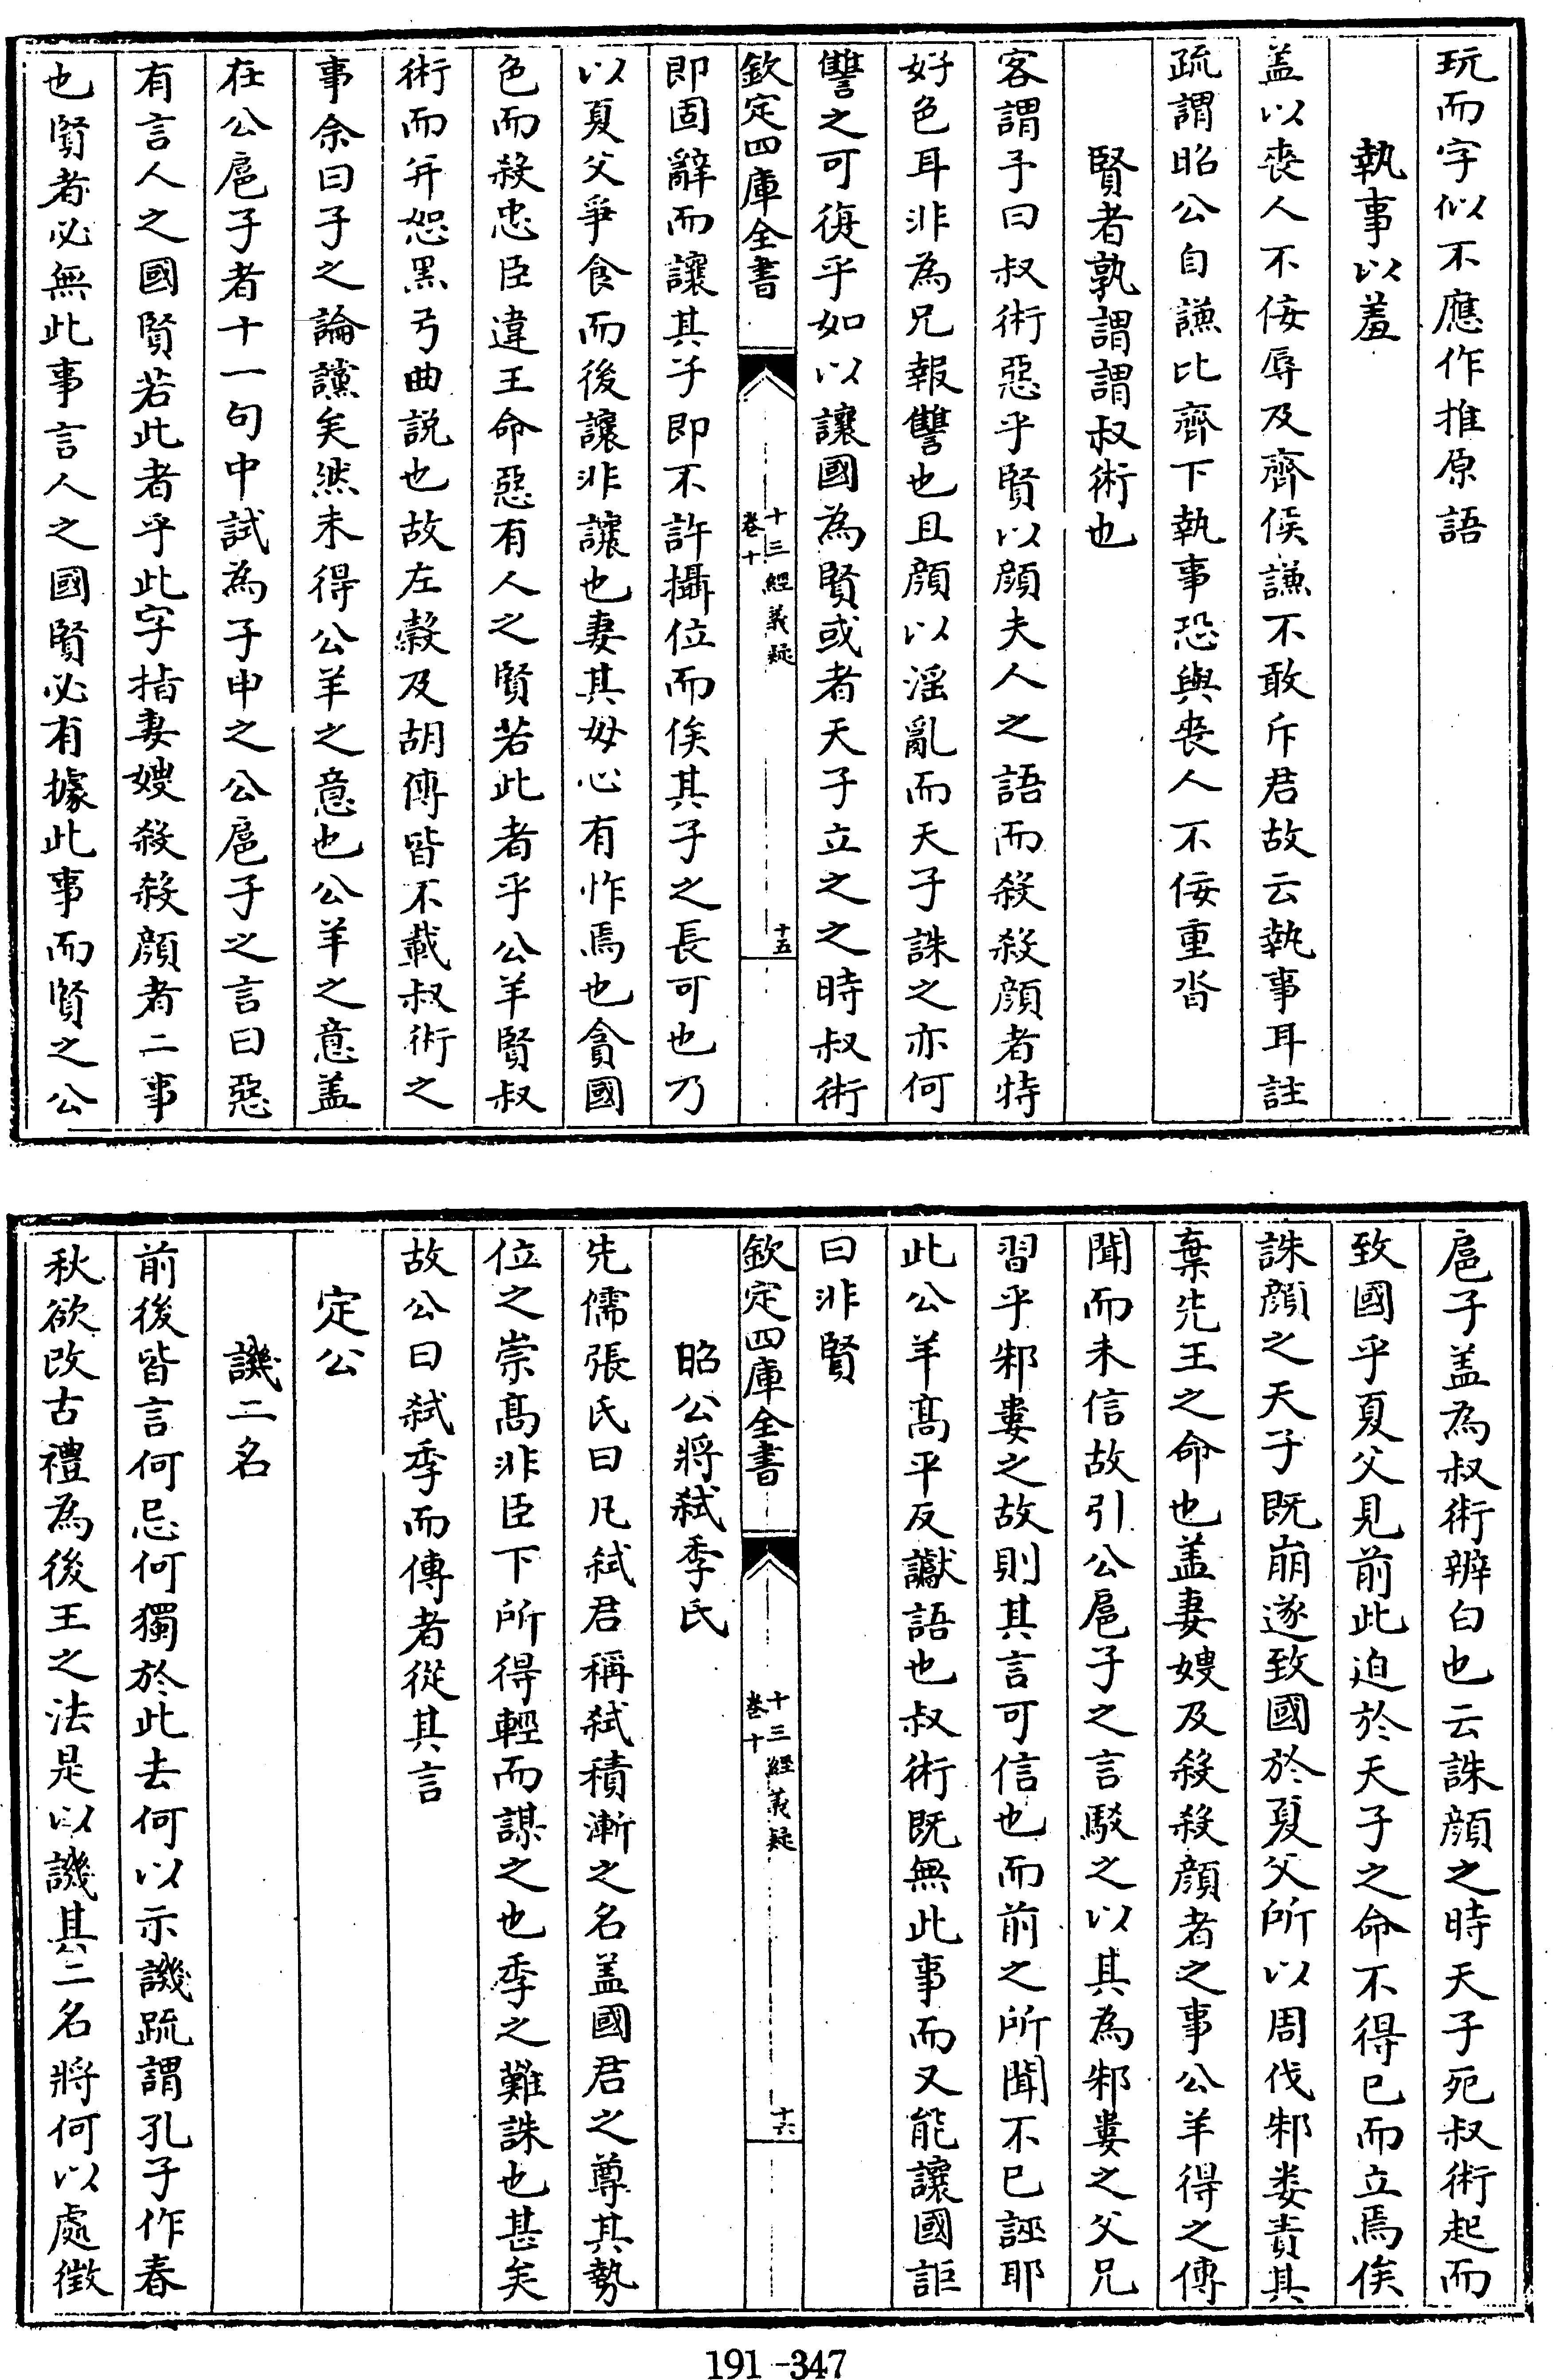 玩而字似不應作推原語
執事以羞
盖以喪人不佞辱及齊侯謙不敢斥君故云執事耳註
疏謂昭公自謙比齊下執事恐與喪人不佞重沓
賢者孰謂謂叔術也
客謂予曰叔術惡乎賢以顔夫人之語而殺殺顔者特
好色耳非為兄報讐也且顔以淫亂而天子誅之亦何
讐之可復乎如以讓國為賢或者天子立之之時叔術
欽定四庫全書
十三經義疑
卷十
十五
即固辭而讓其子即不許攝位而俟其子之長可也乃
以夏父爭食而後讓非讓也妻其母心有怍焉也貪國
色而殺忠臣違王命惡有人之賢若此者乎公羊賢叔
術而并恕黑弓曲説也故左穀及胡傳皆不載叔術之
事余曰子之論讜矣然未得公羊之意也公羊之意盖
在公扈子者十一句中試為子申之公扈子之言曰惡
有言人之國賢若此者乎此字指妻嫂殺殺顔者二事
也賢者必無此事言人之國賢必有據此事而賢之公
扈子盖為叔術辨白也云誅顔之時天子死叔術起而
致國乎夏父見前此迫於天子之命不得已而立焉俟
誅顔之天子既崩遂致國於夏父所以周伐邾娄責其
棄先王之命也盖妻嫂及殺殺顔者之事公羊得之傳
聞而未信故引公扈子之言駁之以其為邾婁之父兄
習乎邾婁之故則其言可信也而前之所聞不已誣耶
此公羊髙平反讞語也叔術既無此事而又能讓國詎
曰非賢
欽定四庫全書
十三經義疑
卷十
十六
昭公將弒季氏
先儒張氏曰凡弒君稱弒積漸之名盖國君之尊其勢
位之崇髙非臣下所得輕而謀之也季之難誅也甚矣
故公曰弒季而傳者從其言
定公
譏二名
前後皆言何忌何獨於此去何以示譏疏謂孔子作春
秋欲改古禮為後王之法是以譏其二名將何以處徵